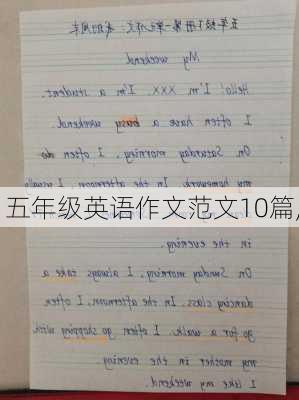 五年级下册第一单元作文：我的周末
My weekend
Hello! I'm XXX. I'm a student.
I often have a busy weekend.
On Saturday morning, I often do
my homework. In the afternoon, I usually
五年级英语作文范文10篇,
in the evening.
On Sunday morning, I always take a
dancing class. In the afternoon, I often
go for a walk. I often go shopping with
my mother in the evening.
I like my weekend.